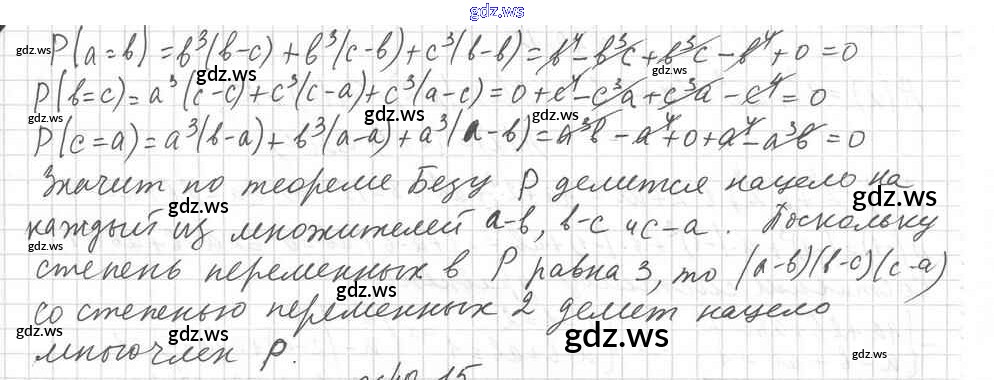 gdz.ws
P(a=b) = b³(b-c) + b³(c-b) + c³(b-b) = b⁴ - b³c + b³c - b⁴ + 0 = 0
P(b=c) = a³(c-c) + c³(c-a) + c³(a-c) = 0 + c⁴ - c³a + c³a - c⁴ = 0
P(c=a) = a³(b-a) + b³(a-a) + a³(a-b) = a³b - a⁴ + 0 + a⁴ - a³b = 0
Значит по теореме Безу P делится нацело на
каждый из множителей a-b, b-c и c-a. Поскольку
степень переменных в P равна 3, то (a-b)(b-c)(c-a)
со степенью переменных 2 делит нацело
многочлен P.
gdz.ws
gdz.ws
gdz.ws
gdz.ws
gdz.ws
gdz.ws
gdz.ws
gdz.ws
gdz.ws
gdz.ws
gdz.ws
gdz.ws
gdz.ws
gdz.ws